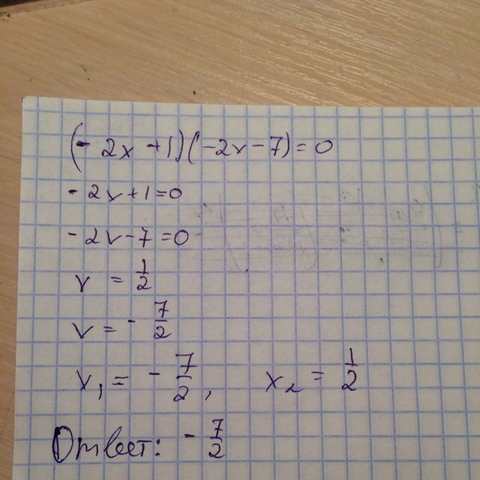 (-2x+1)(-2x-7)=0
-2x+1=0
-2x-7=0
x = 1/2
x = - 7/2
x₁ = - 7/2, x₂ = 1/2
Ответ: - 7/2